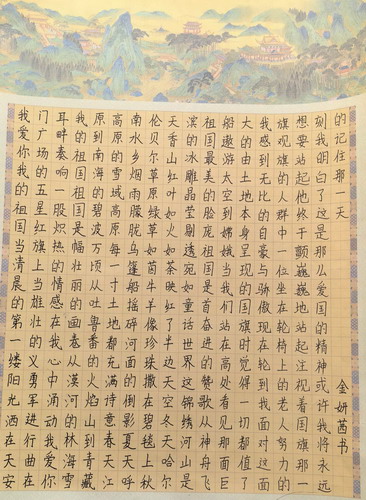 我爱你我的祖国当清晨的第一缕阳光洒在天安
门广场的五星红旗上当雄壮的义勇军进行曲在
耳畔奏响一股炽热的情感在我心中涌动我爱你
我的祖国祖国是幅壮丽的画卷从漠河的林海雪
原到南海的碧波万顷从吐鲁番的火焰山到青藏
高原的雪域高原每一寸土地都充满诗意春天江
南水乡烟雨朦胧乌篷船摇碎河面的倒影夏天呼
伦贝尔草原绿草如茵牛羊像珍珠撒在碧毯上秋
天香山红叶如火如荼映红了半边天空冬天哈尔
滨的冰雕晶莹剔透宛如童话世界这锦绣河山是
祖国最美的脸庞祖国是首奋进的赞歌从神舟飞
船遨游太空到嫦娥当我们站在高处看见那面巨
大的由土地本身呈现的国旗时觉得一切都值了
我感到无比的自豪与骄傲现在轮到我面对这面
旗观旗的人群中一位坐在轮椅上的老人努力的
想要站起他终于颤巍巍地站起注视着国旗那一
刻我明白了这是那么爱国的精神或许我将永远
的记住那一天
金妍茜书